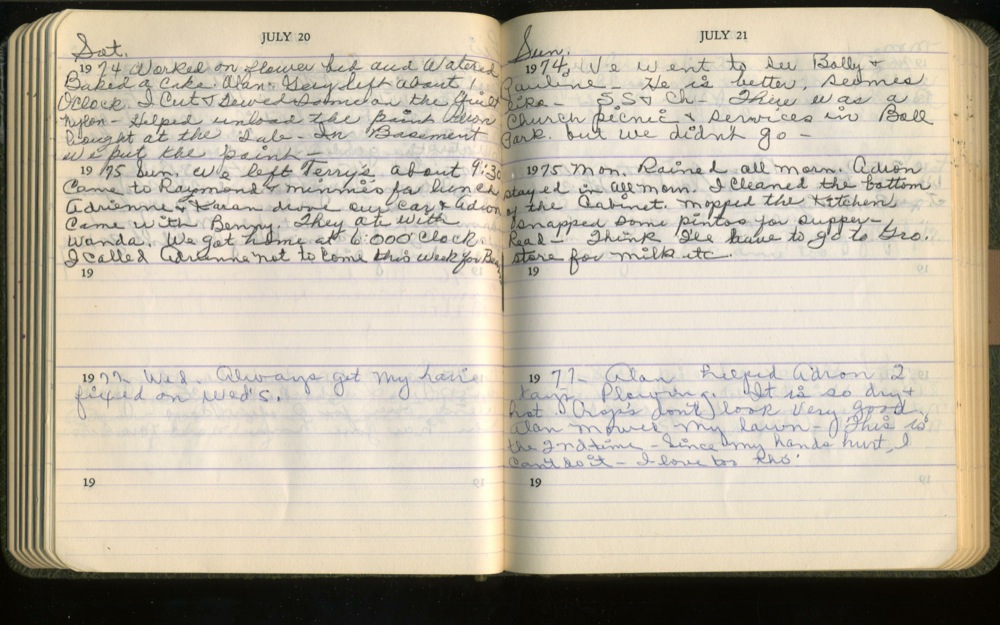 JULY 20
Sat.
1974 Worked on flower bed and Watered
Baked a Cake. Alan & Gary left about 1
OClock. I Cut & Sewed some on the quilt
nylon - Helped unload the paint Adron
bought at the Sale - In Basement
we put the paint -
1975 Sun. We left Terry's about 9:30
Came to Raymond & Minnies for lunch
Adrienne & Karan drove our car & Adron
Came with Benny. They ate with
Wanda. We got home at 6:00 O Clock
I called Adrienne not to come this week for
19
1977 Wed. Always get my hair
fixed on Wed's.
19
JULY 21
Sun.
1974. We went to see Bolly &
Pauline. He is better, seems
like - S S & Ch - There was a
Church picnic & services in Ball
Park. but we didnt go -
1975 Mon. Rained all morn. Adron
stayed in all morn. I cleaned the bottom
of the Cabinet. mopped the Kitchen
Snapped some pintos for supper -
Read - Think I'll have to go to Gro.
store for milk etc.
19
1977 - Alan helped Adron 2
days Plowing. It is so dry &
hot Crop's don't look very good,
Alan mowed my lawn - This is
the 2nd time - Since my hands hurt, I
Can't do it - I love too tho'
19